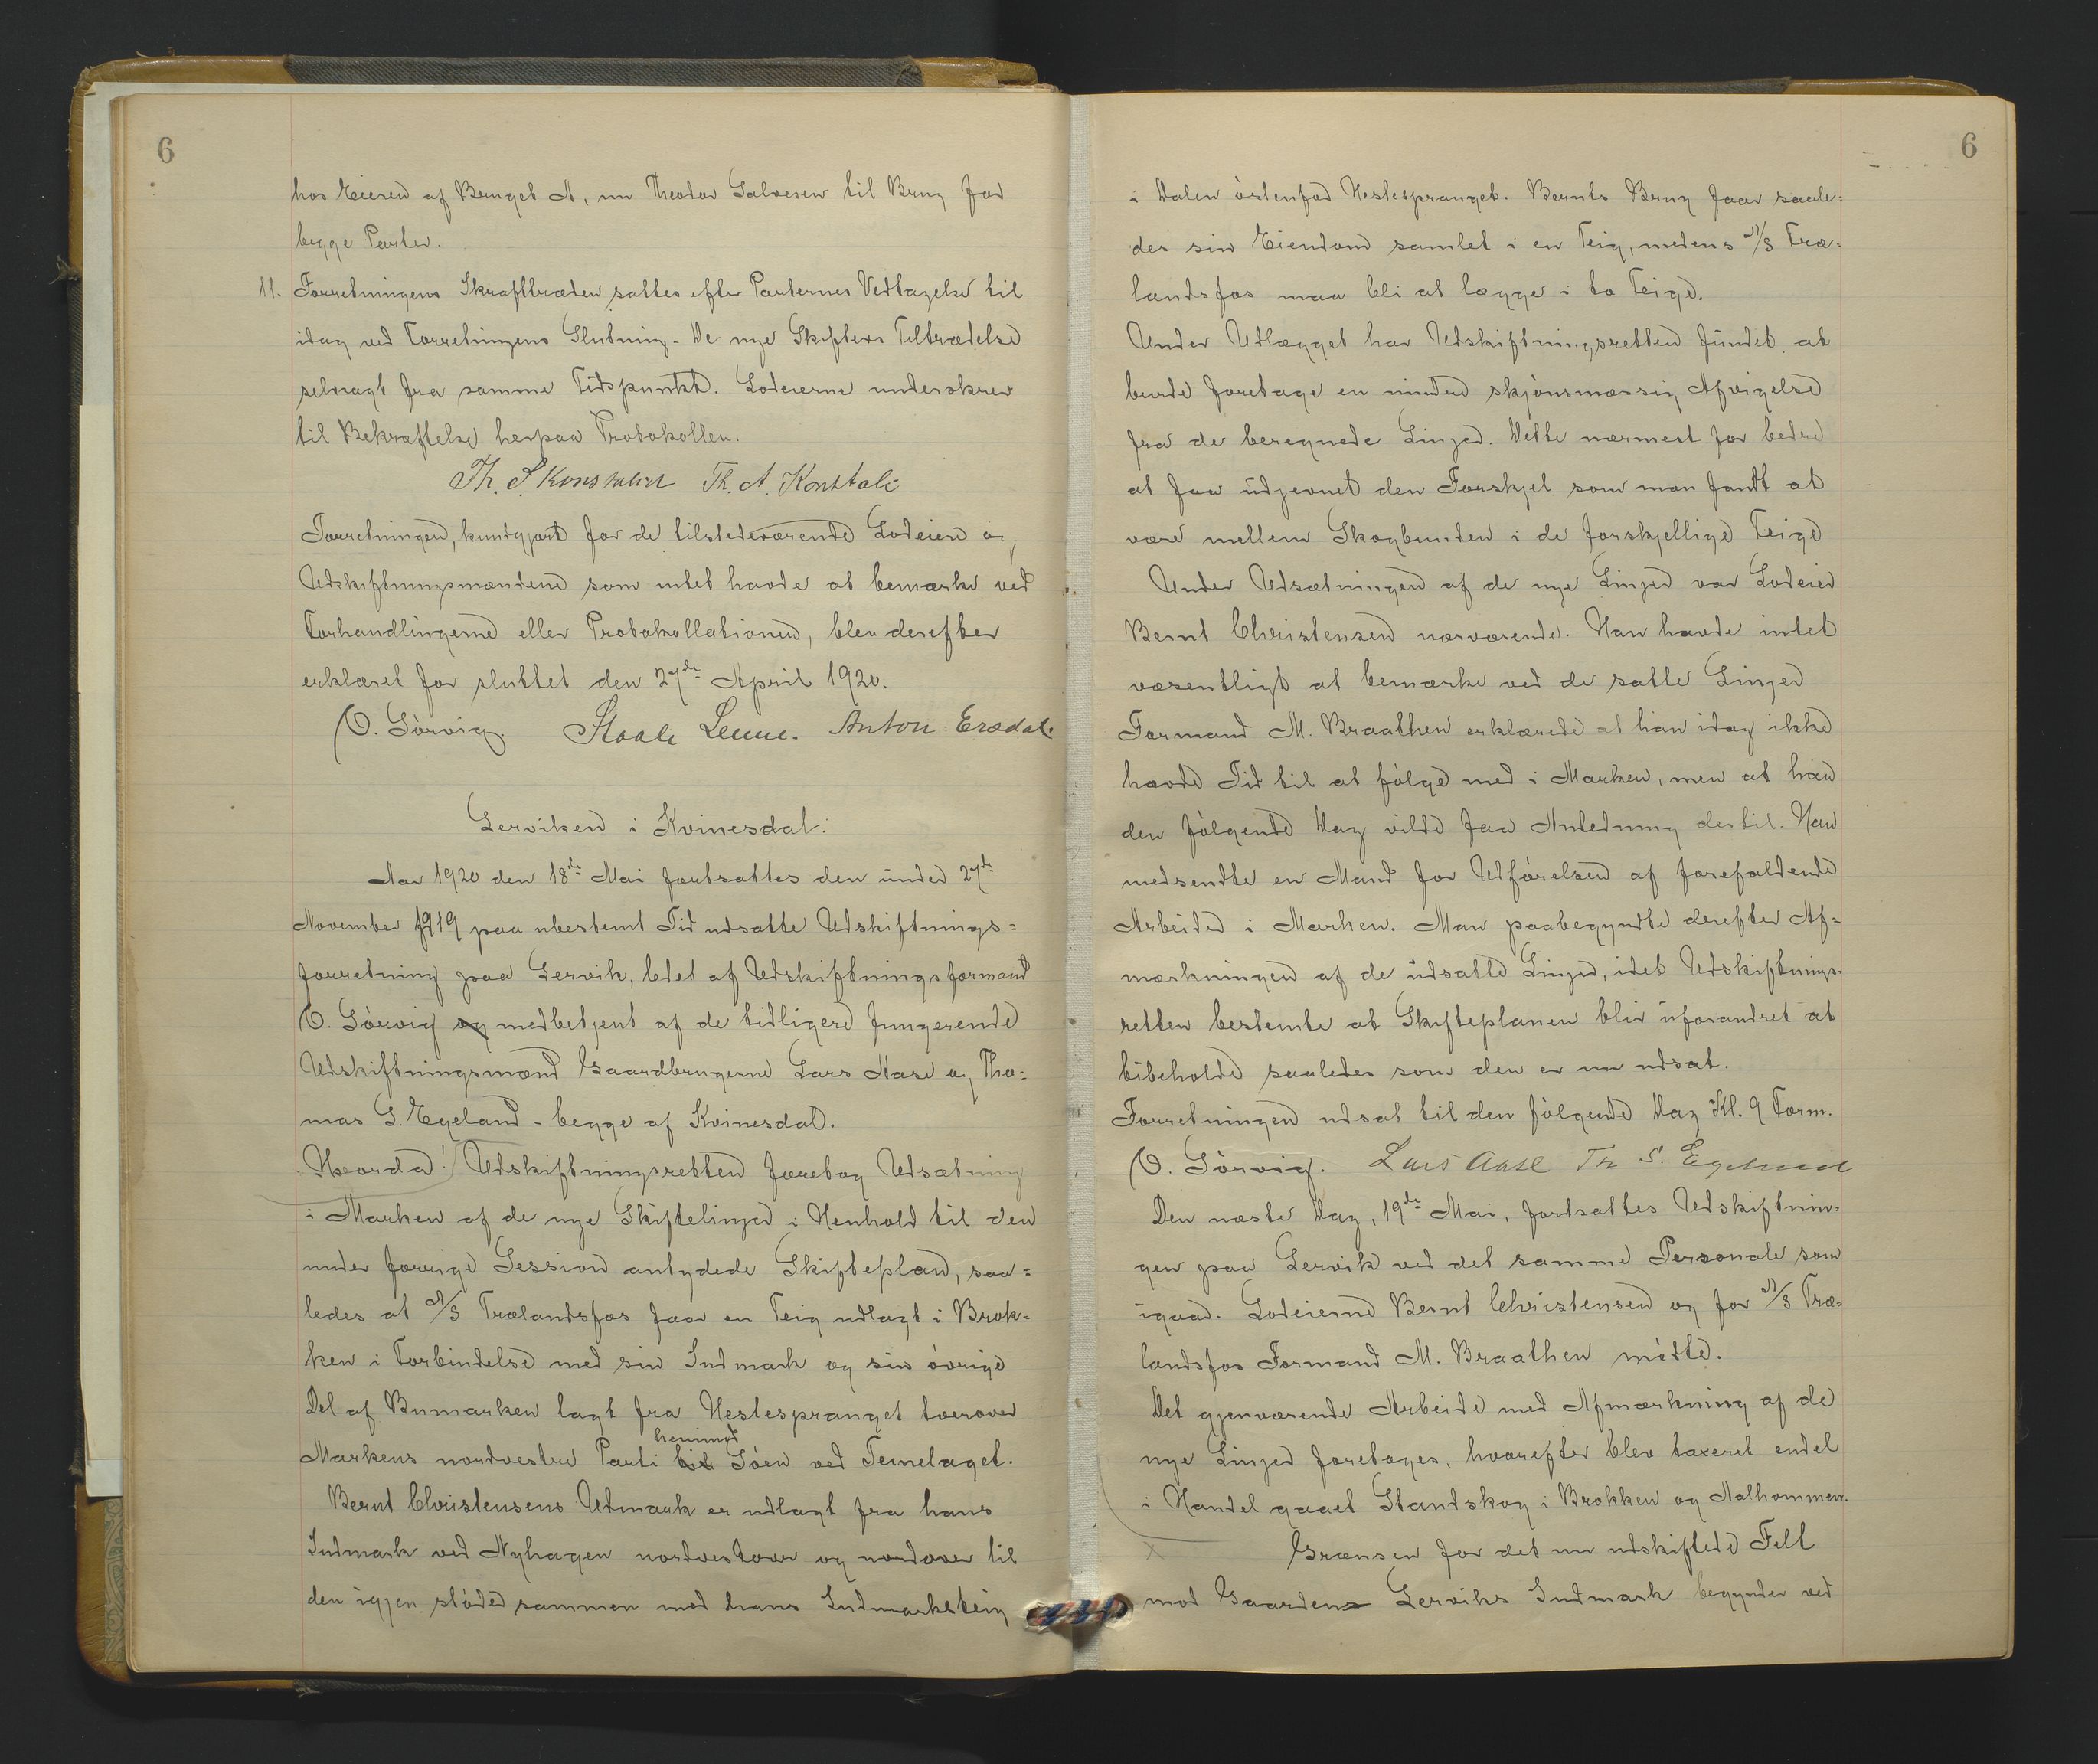 6
hos Eieren af Bruget A, nu Theodor Salvesen til Brug for
begge Parter.
11. Forretningens Ikrafttræden sattes efter Parternes Vedtagelse til
idag ved Forretningens Slutning. De nye Skifters Tiltrædelse
selvsagt fra samme Tidspunkt. Lodeierne underskrev
til Bekræftelse herpaa Protokollen.
Th. S. Konstalid Th. A. Konstali
Forretningen, kundgjort for de tilstedeværende Lodeiere og
Udskiftningsmændene som intet havde at bemærke ved
Forhandlingerne eller Protokollationen, blev derefter
erklæret for sluttet den 27de April 1920.
O. Sörvig. Staale Leune. Anton Ersdal.
Lerviken i Kvinesdal:
Aar 1920 den 18de Mai fortsattes den under 27de
November 1919 paa ubestemt Tid udsatte Udskiftnings=
forretning paa Lervik, ledet af Udskiftningsformand
O. Sörvig og medbetjent af de tidligere fungerende
Udskiftningsmænd Gaardbrugerne Lars Aase og Tho=
mas S. Egeland - begge af Kvinesdal.
Hvorda! Udskiftningsretten foretog Udsætning
i Marken af de nye Skiftelinjer i Henhold til den
under forrige Session antydede Skifteplan, saa=
ledes at A/S Trælandsfos faar en Teig udlagt i Brok=
ken i Forbindelse med sin Indmark og sin övrige
Del af Bumarken lagt fra Hestespranget tverover
henimod
Markens nordvestre Parti til Söen ved Teinelaget.
Bernt Christensens Utmark er udlagt fra hans
Indmark ved Nyhagen nordvestover og nordover til
den igjen stöder sammen med hans Indmarksteig
6
i Dalen östenfor Hestespranget. Bernts Brug faar saale=
des sin Eiendom samlet i en Teig, medens A/S Træ=
landsfos maa bli at lægge i to Teige.
Under Udlægget har Udskiftningsretten fundet at
burde foretage en mindre skjönsmæssig Afvigelse
fra de beregnede Linjer. Dette nærmest for bedre
at faa udjevnet den Forskjel som man fandt at
være mellem Skogbunden i de forskjellige Teige
Under Udsætningen af de nye Linjer var Lodeier
Bernt Christensen nærværende. Han havde intet
væsentligt at bemærke ved de satte Linjer
Formand M. Braathen erklærede at han idag ikke
havde Tid til at fölge med i Marken, men at han
den fölgende Dag vilde faa Anledning dertil. Han
medsendte en Mand for Udförelsen af forefaldende
Arbeider i Marken. Man paabegyndte derefter Af=
mærkningen af de udsatte Linjer, idet Udskiftnings-
retten bestemte at Skifteplanen bliv uforandret at
bibeholde saaledes som den er nu udsat.
Forretningen udsat til den fölgende Dag Kl. 9 Form.
O. Sörvig. Lars Aase Th S. Egeland
Den næste Dag, 19de Mai, fortsattes Udskiftnin-
gen paa Lervik ved det samme Personale som
igaar. Lodeierne Bernt Christensen og for A/S Træ-
landsfos Formand M. Braathen mödte.
Det gjenværende Arbeide med Afmærkning af de
nye Linjer foretoges, hvorefter blev taxeret endel
i Handel gaaet Standskog i Brokken og Aalhommen.
Grænsen for det nu udskiftede Felt
mod Gaardens Lerviks Indmark begynder ved